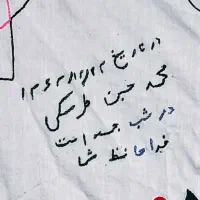 در تاریخ ۱۳۶۳/۲/۲۳
محمد حسن طرسکی
در شب جمعه است
خداحافظ شما